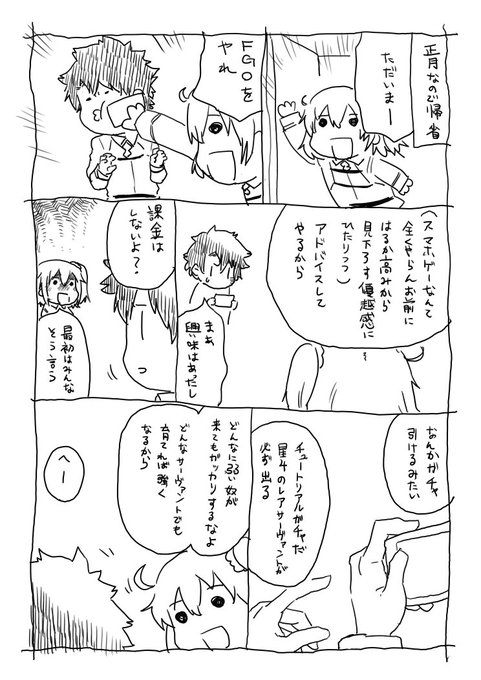 正月なので帰省
ただいまー
FGOを
やれ
(スマホゲーなんて
全くやらんお前に
はるか高みから
見下ろす優越感に
ひたりつつ)
アドバイスして
やるから
まぁ
興味はあったし
課金は
しないよ?
最初はみんな
そう言う
なんかガチャ
引けるみたい
チュートリアルガチャだ
星4のレアサーヴァントが
必ず出る
どんなに弱い奴が
来てもガッカリするなよ
どんなサーヴァントでも
育てれば強く
なるから
へー